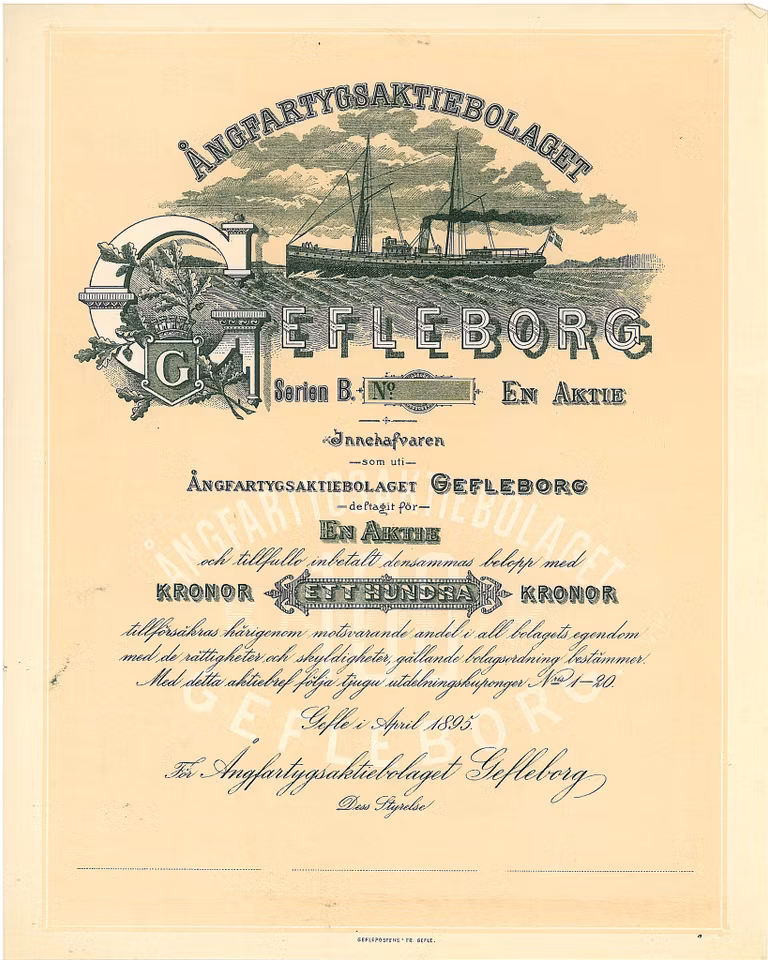 ÅNGFARTYGSAKTIEBOLAGET
GEFLEBORG
G
Serien B. No EN AKTIE
Innehafvaren
—som uti—
ÅNGFARTYGSAKTIEBOLAGET GEFLEBORG
—deltagit för—
EN AKTIE
och tillfullo inbetalt densammas belopp med
KRONOR ETT HUNDRA KRONOR
tillförsäkras härigenom motsvarande andel i all bolagets egendom
med de rättigheter och skyldigheter, gällande bolagsordning bestämmer.
Med detta aktiebref följa tjugu utdelningskuponger Nris 1—20.
Gefle i April 1895.
För Ångfartygsaktiebolaget Gefleborg
Dess Styrelse
ÅNGFARTYGSAKTIEBOLAGET
100
GEFLEBORG
GEFLEPOSTENS TR. GEFLE.